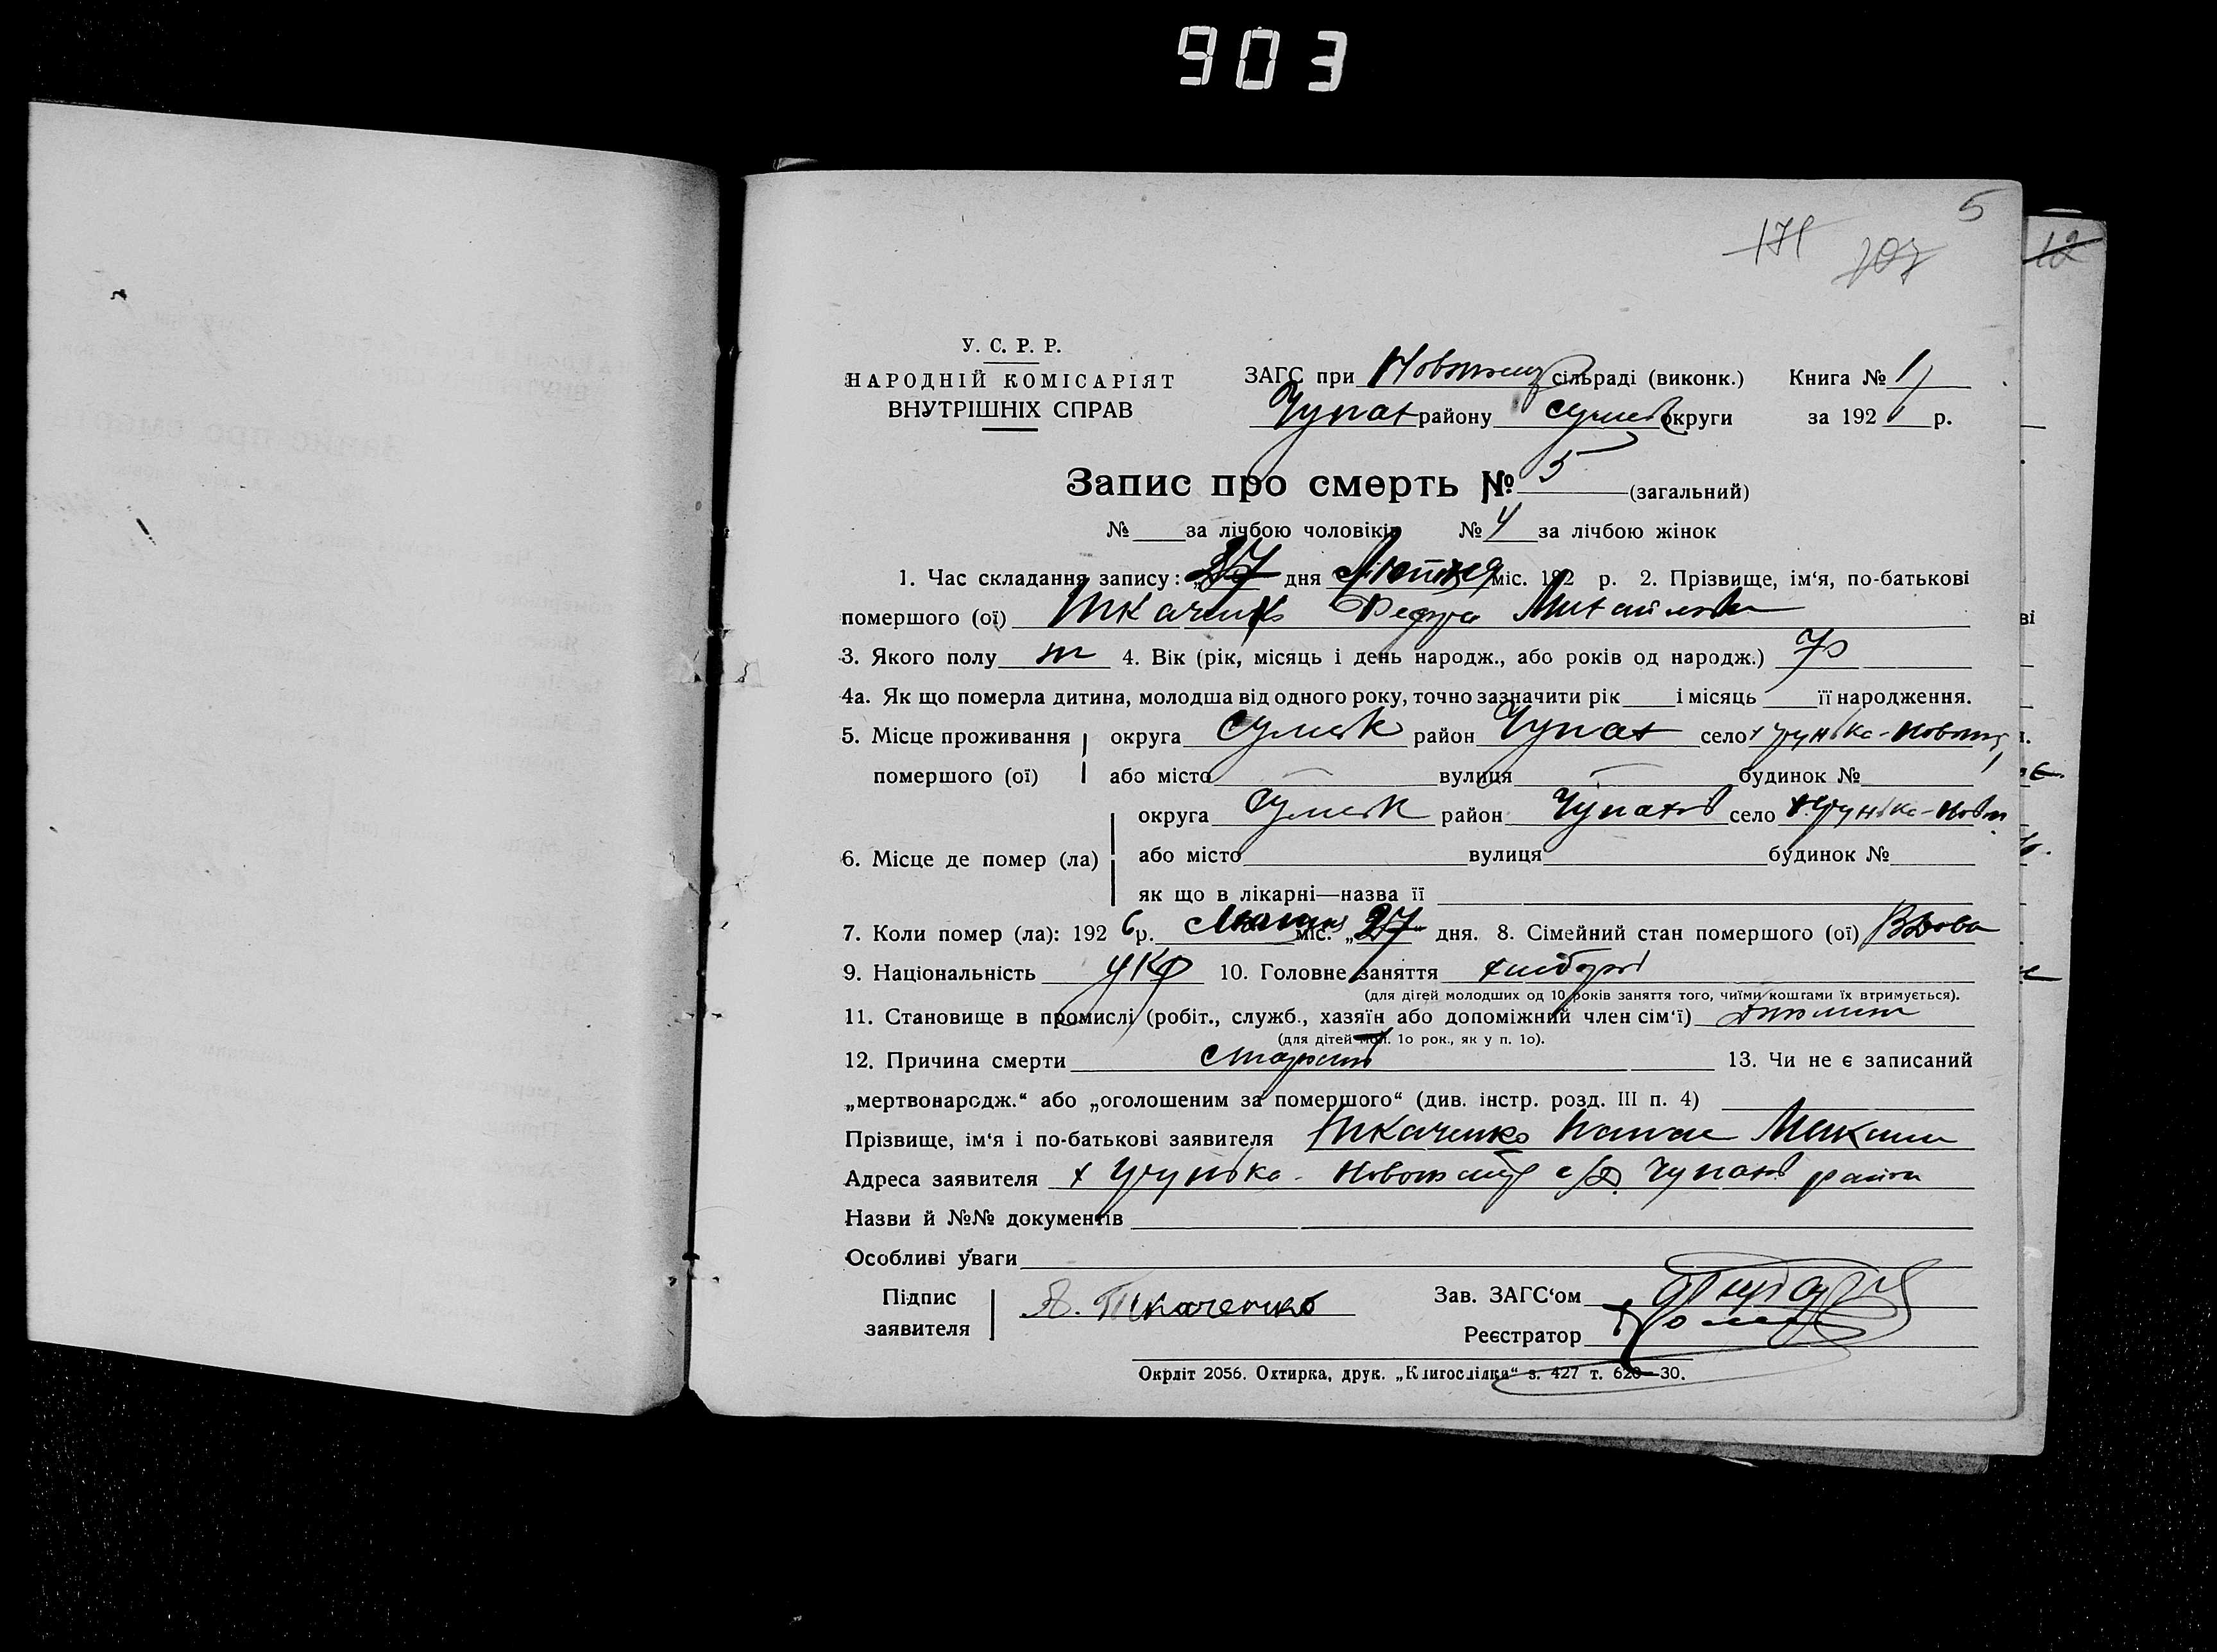 903
5
171
107
12
У. С. Р. Р.
НАРОДНІЙ КОМІСАРІЯТ
ВНУТРІШНІХ СПРАВ
ЗАГС при сільраді (виконк.) Книга № 1
Чупах району Сумськ округи за 192 р.
Запис про смерть № 5 (загальний)
№ за лічбою чоловіків № 4 за лічбою жінок
1. Час складання запису: „27 дня Лютня міс. 192 р. 2. Прізвище, ім‘я, по-батькові
помершого (ої) Ткаченко Михайловн
3. Якого полу 4. Вік (рік, місяць і день народж., або років од народж.) 70
4а. Як що померла дитина, молодша від одного року, точно зазначити рік і місяць її народження.
5. Місце проживання округа Сумськ район Чупах село
помершого (ої) або місто вулиця будинок №
округа Сумськ район Чупахів село
6. Місце де помер (ла) або місто вулиця будинок №
як що в лікарні—назва її
7. Коли помер (ла): 192 6 р. міс. „27“ дня. 8. Сімейний стан помершого (ої) Вдова
9. Національність укр 10. Головне заняття хлібороб
(для дітей молодших од 10 років заняття того, чиїми коштами їх втримується).
11. Становище в промислі (робіт., служб., хазяїн або допоміжний член сім‘ї)
(для дітей мол. 1о рок., як у п. 1о).
12. Причина смерти старість 13. Чи не є записаний
„мертвонародж.“ або „оголошеним за помершого“ (див. інстр. розд. III п. 4)
Прізвище, ім‘я і по-батькові заявителя Ткаченко Панас Максим
Адреса заявителя х с/р Чупахів району
Назви й №№ документів
Особливі уваги
Підпис
заявителя
Ткаченко
Зав. ЗАГС‘ом
Реєстратор
Окрліт 2056. Охтирка, друк. „Книгоспілка“ з. 427 т. 620—30.